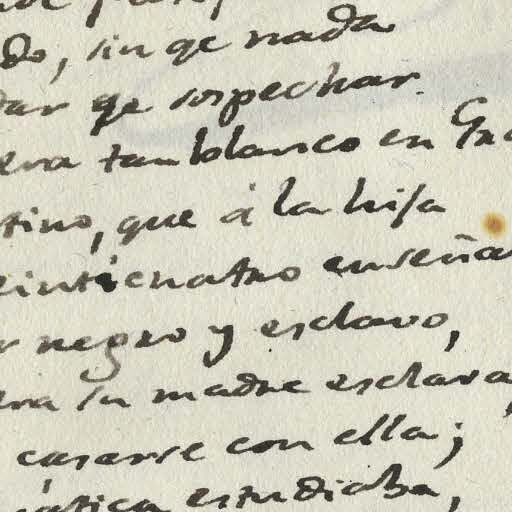 do, sin qe nada
dar qe sospechar.
era tan blanco en Gra
tino, que á la hija
veinticuatro enseña
r negro y esclavo,
era su madre esclava,
casarse con ella;
ática estudiaba,